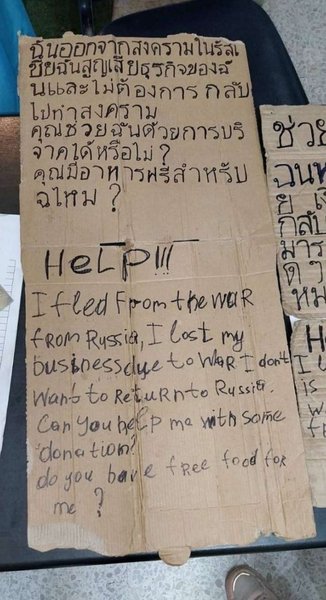 ฉันออกจากสงครามในรัสเ
ซียฉันสูญเสียธุรกิจของฉั
นและไม่ต้องการ กลับ
ไปทำสงคราม
คุณช่วยฉันด้วยการบริ
จาคได้หรือไม่?
คุณมีอาหารฟรีสำหรับ
ฉไหม ?
HeLP!!!
I fled From the waR
fRom Russia, I lost my
business due to waR I don't
want to RetuRn to Russia.
Can you help me with some
donation?
do you have fRee food foR
me ?
ช่วย
ฉันห
กลับ
มาร
ด ๆ
หม
He
I
is